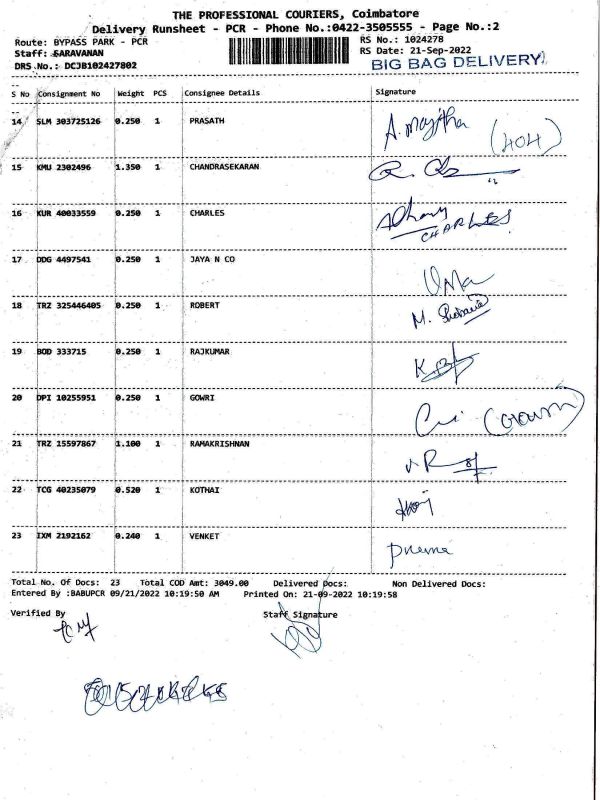 THE PROFESSIONAL COURIERS, Coimbatore
Delivery Runsheet - PCR - Phone No.:0422-3505555 - Page No.:2
Route: BYPASS PARK - PCR RS No.: 1024278
Staff: SARAVANAN RS Date: 21-Sep-2022
DRS No.: DCJB102427802 BIG BAG DELIVERY
S No Consignment No Weight PCS Consignee Details Signature
14 SLM 303725126 0.250 1 PRASATH A. (404)
15 KMU 2302496 1.350 1 CHANDRASEKARAN
16 KUR 40033559 0.250 1 CHARLES
CHARLES
17 DDG 4497541 0.250 1 JAYA N CO
18 TRZ 325446405 0.250 1 ROBERT M.
19 BOD 333715 0.250 1 RAJKUMAR
20 DPI 10255951 0.250 1 GOWRI
21 TRZ 15597867 1.100 1 RAMAKRISHNAN
22 TCG 40235079 0.520 1 KOTHAI
23 IXM 2192162 0.240 1 VENKET
Total No. Of Docs: 23 Total COD Amt: 3049.00 Delivered Docs: Non Delivered Docs:
Entered By :BABUPCR 09/21/2022 10:19:50 AM Printed On: 21-09-2022 10:19:58
Verified By Staff Signature